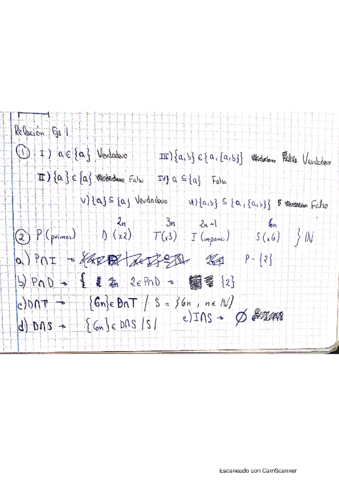 Relación Ejs 1
① I) a ∈ {a} Verdadero III) {a, b} ∈ {a, {a, b}} Verdadero
II) {a} ∈ {a} Falso IV) a ⊆ {a} Falso
V) {a} ⊆ {a} Verdadero VI) {a, b} ⊆ {a, {a, b}} Falso
2n 3n 2n+1 6n
② P (primos) D (x2) T (x3) I (impares) S (x6) } ℕ
a) P∩I → P - {2}
b) P∩D → { 2 ∈ P∩D → {2}
c) D∩T → {6n} ∈ D∩T / S = {6n, n ∈ ℕ}
d) D∩S → {6n} ∈ D∩S |S| e) I∩S → ∅
Escaneado con CamScanner